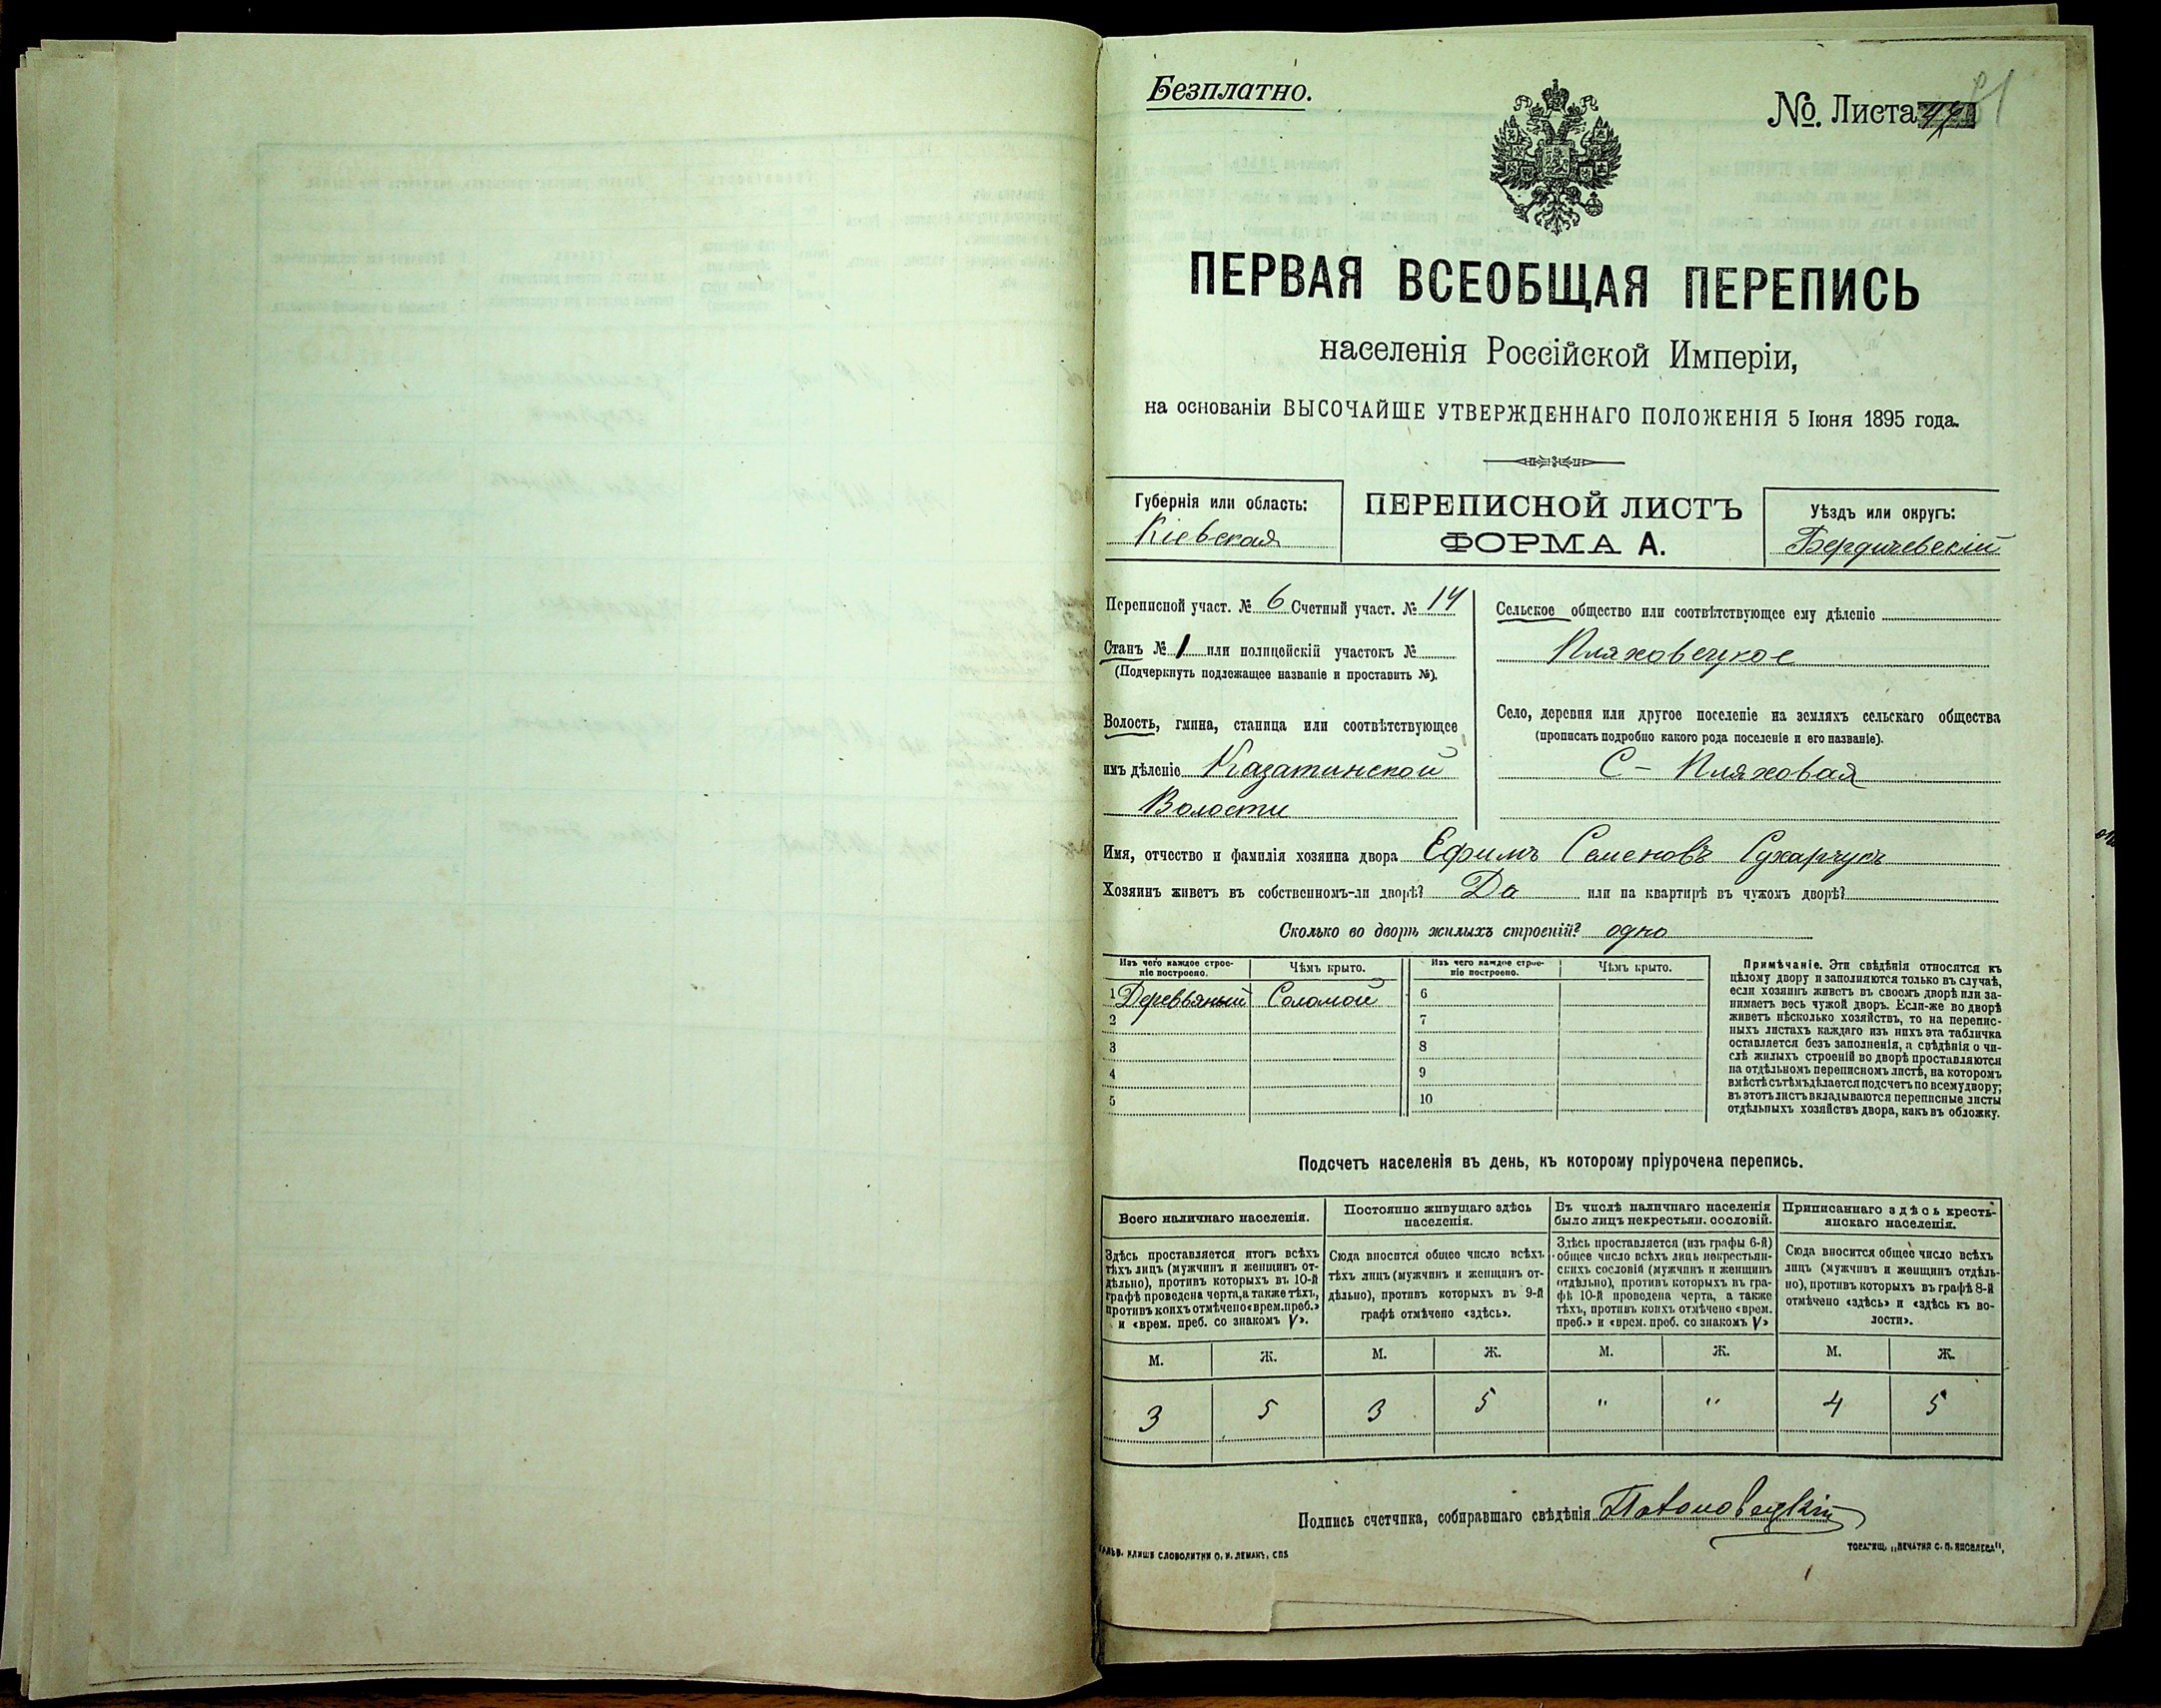 Безплатно.
№. Листа 47 81
ПЕРВАЯ ВСЕОБЩАЯ ПЕРЕПИСЬ
населенія Россійской Имперіи,
на основаніи ВЫСОЧАЙШЕ УТВЕРЖДЕННАГО ПОЛОЖЕНІЯ 5 Іюня 1895 года.
Губернія или область:
Кіевская
ПЕРЕПИСНОЙ ЛИСТЪ
ФОРМА А.
Уѣздъ или округъ:
Бердичевскій
Переписной участ. № 6 Счетный участ. № 14
Станъ № 1 или полицейскій участокъ №
(Подчеркнуть подлежащее названіе и проставить №).
Волость, гмина, станица или соотвѣтствующее
имъ дѣленіе Казатинской
Волости
Сельское общество или соотвѣтствующее ему дѣленіе
Пляховецкое
Село, деревня или другое поселеніе на земляхъ сельскаго общества
(прописать подробно какого рода поселеніе и его названіе).
С – Пляховая
Имя, отчество и фамилія хозяина двора Ефимъ Семеновъ Сухарчукъ
Хозяинъ живетъ въ собственномъ-ли дворѣ? Да или на квартирѣ въ чужомъ дворѣ?
Сколько во дворѣ жилыхъ строеній? одно
Изъ чего каждое строе-
ніе построено.
Чѣмъ крыто.
Изъ чего каждое строе-
ніе построено.
Чѣмъ крыто.
1 Деревьяный Соломой
2
3
4
5
6
7
8
9
10
Примѣчаніе. Эти свѣдѣнія относятся къ
цѣлому двору и заполняются только въ случаѣ,
если хозяинъ живетъ въ своемъ дворѣ или за-
нимаетъ весь чужой дворъ. Если-же во дворѣ
живетъ нѣсколько хозяйствъ, то на перепис-
ныхъ листахъ каждаго изъ нихъ эта табличка
оставляется безъ заполненія, а свѣдѣнія о чи-
слѣ жилыхъ строеній во дворѣ проставляются
на отдѣльномъ переписномъ листѣ, на которомъ
вмѣстѣ съ тѣмъ дѣлается подсчетъ по всему двору;
въ этотъ листъ вкладываются переписные листы
отдѣльныхъ хозяйствъ двора, какъ въ обложку.
Подсчетъ населенія въ день, къ которому пріурочена перепись.
Всего наличнаго населенія.
Здѣсь проставляется итогъ всѣхъ
тѣхъ лицъ (мужчинъ и женщинъ от-
дѣльно), противъ которыхъ въ 10-й
графѣ проведена черта, а также тѣхъ,
противъ коихъ отмѣчено «врем. преб.»
и «врем. преб. со знакомъ V».
Постоянно живущаго здѣсь
населенія.
Сюда вносится общее число всѣхъ
тѣхъ лицъ (мужчинъ и женщинъ от-
дѣльно), противъ которыхъ въ 9-й
графѣ отмѣчено «здѣсь».
Въ числѣ наличнаго населенія
было лицъ некрестьян. сословій.
Здѣсь проставляется (изъ графы 6-й)
общее число всѣхъ лицъ некрестьян-
скихъ сословій (мужчинъ и женщинъ
отдѣльно), противъ которыхъ въ гра-
фѣ 10-й проведена черта, а также
тѣхъ, противъ коихъ отмѣчено «врем.
преб.» и «врем. преб. со знакомъ V»
Приписаннаго здѣсь кресть-
янскаго населенія.
Сюда вносится общее число всѣхъ
лицъ (мужчинъ и женщинъ отдѣль-
но), противъ которыхъ въ графѣ 8-й
отмѣчено «здѣсь» и «здѣсь къ во-
лости».
М. Ж. М. Ж. М. Ж. М. Ж.
3 5 3 5 " " 4 5
Подпись счетчика, собиравшаго свѣдѣнія
КЛИШЕ СЛОВОЛИТНИ О. И. ЛЕМАНЪ, СПБ
ТОВАРИЩ. „ПЕЧАТНЯ С. П. ЯКОВЛЕВА“.